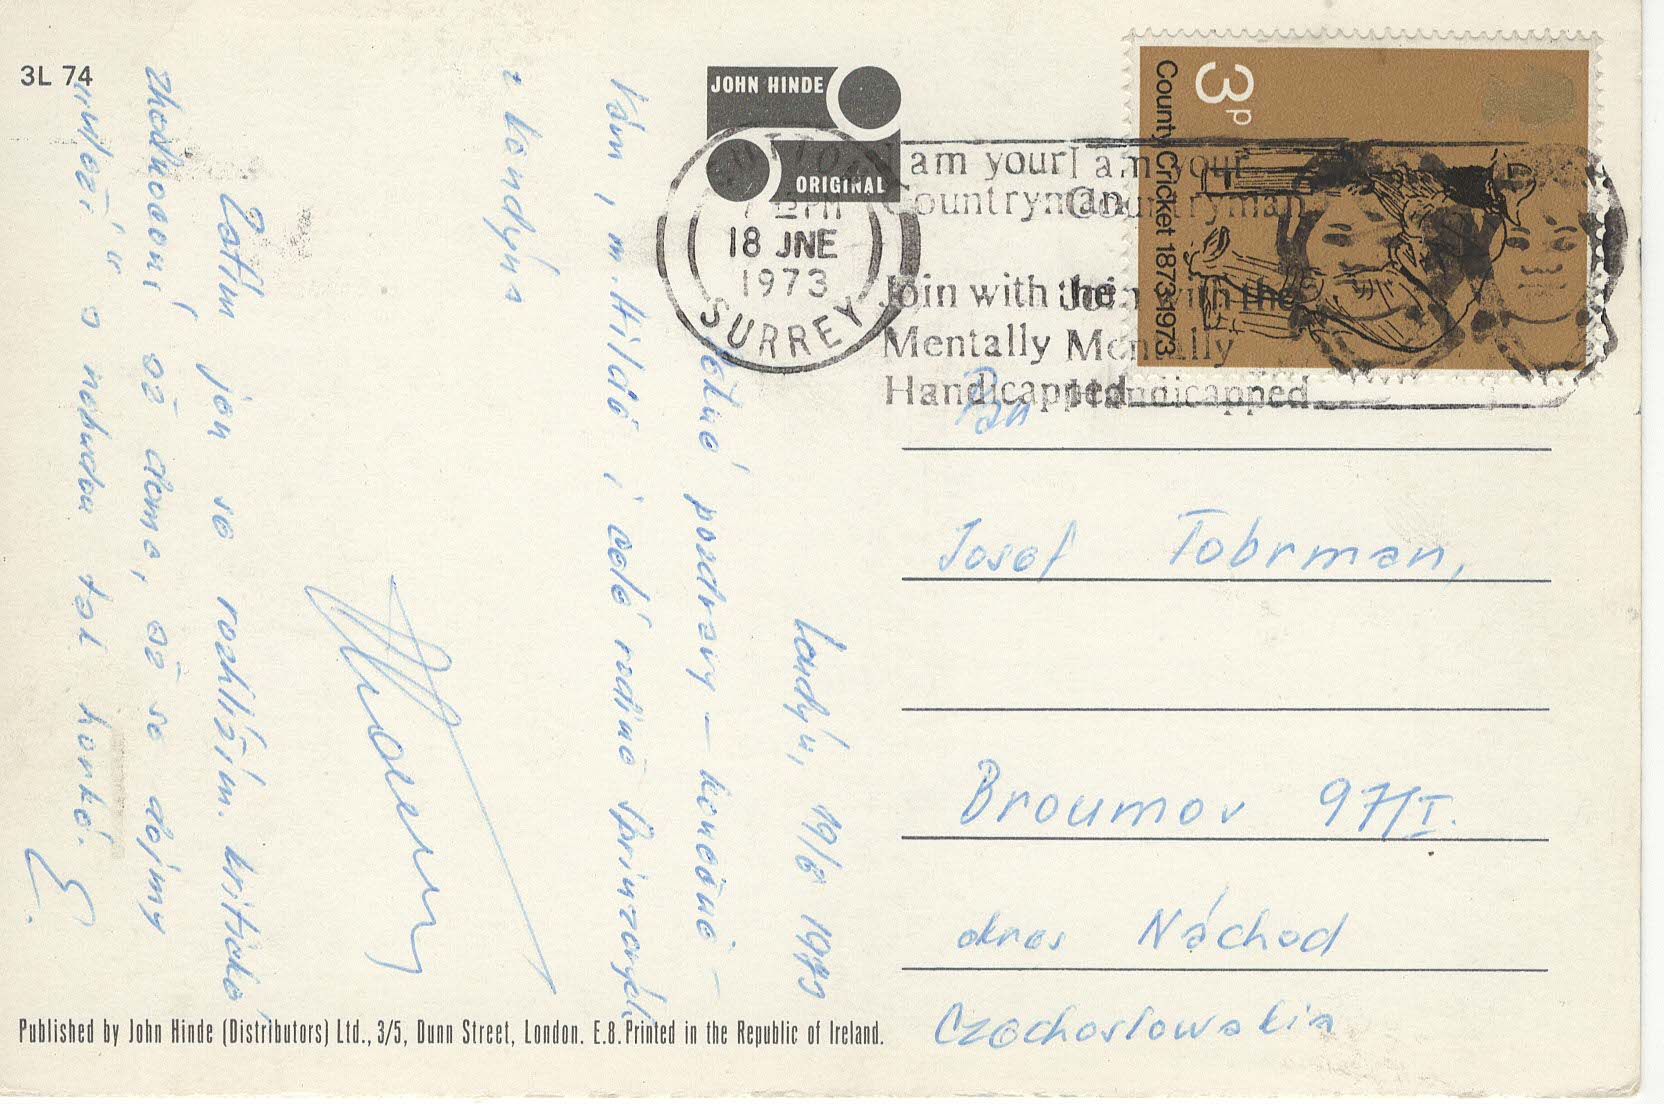 3L 74
JOHN HINDE
ORIGINAL
18 JNE
1973
SURREY
I am your I am your
Countryman Countryman
Join with the Join with the
Mentally Mentally
Handicapped Handicapped
3p
County Cricket 1873-1973
Londýn, 19/6 1973
pozdravy – konečně –
Vám, m. Hildě i celé rodině
z Londýna
Zatím jen se rozhlížím. Kritické
zhodnocení až doma, až se dojmy
a nebudou tak horké.
Pan
Josef Tobrman,
Broumov 97/I.
okres Náchod
Czechoslowakia
Published by John Hinde (Distributors) Ltd., 3/5, Dunn Street, London. E.8. Printed in the Republic of Ireland.